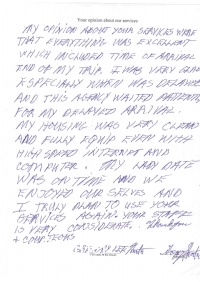 Your opinion about our services
MY OPINION ABOUT YOUR SERVICES WERE
THAT EVERYTHING WAS EXCELLENT
WHICH INCLUDED TIME OF ARRIVAL
END OF MY TRIP. I WAS VERY
ESPECIALLY WHICH WAS DELAYED
AND THIS AGENCY WAITED
FOR MY DELAYED ARRIVAL.
MY HOUSING WAS VERY
AND FULLY EQUIP EVEN WITH
HIGH SPEED INTERNET AND
COMPUTER. MY LADY DATE
WAS ON TIME AND WE
ENJOYED OURSELVES AND
I TRULY PLAN TO USE YOUR
SERVICES AGAIN. YOUR STAFF
IS VERY CONSIDERATE.